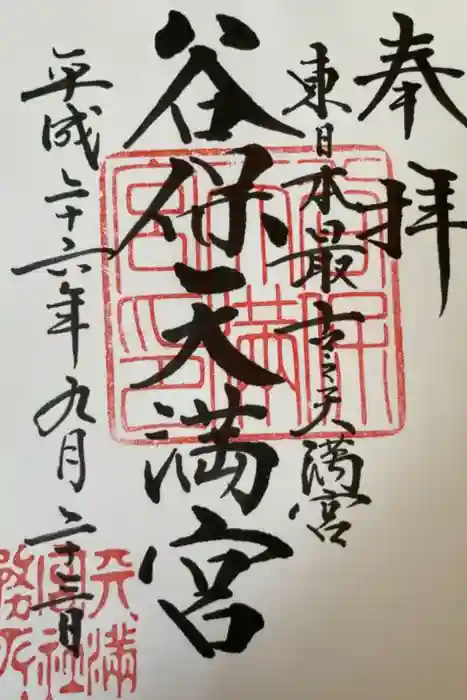 奉拝
東日本最古之天満宮
谷保天満宮
平成二十六年九月二十三日
谷保天満宮印
天満宮社務所